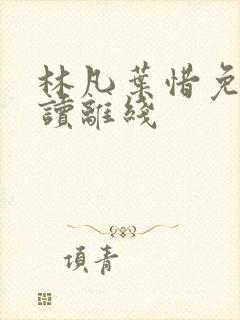 林凡葉惜免
讀離綫
項青